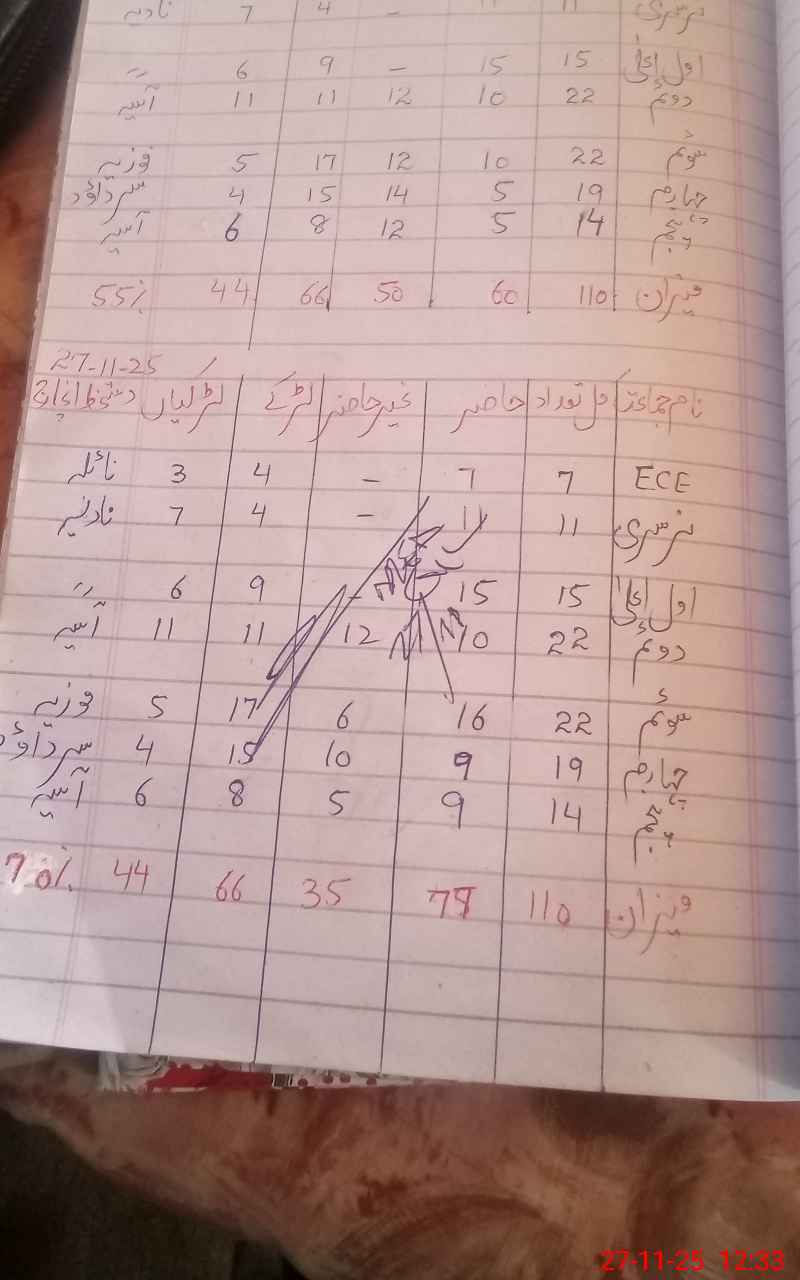 11 11 - 4 7 نادیہ
اول اعلیٰ 15 15 - 9 6 //
دوئم 22 10 12 11 11 آسیہ
سوئم 22 10 12 17 5 فوزیہ
چہارم 19 5 14 15 4 سر داؤد
پنجم 14 5 12 8 6 آسیہ
میزان 110 60 50 66 44 55%
27-11-25
نام جماعت کل تعداد حاضر غیر حاضر لڑکے لڑکیاں دستخط انچارج
ECE 7 7 - 4 3 نائلہ
نرسری 11 11 - 4 7 نادیہ
اول اعلیٰ 15 15 - 9 6 //
دوئم 22 10 12 11 11 آسیہ
سوئم 22 16 6 17 5 فوزیہ
چہارم 19 9 10 15 4 سر داؤد
پنجم 14 9 5 8 6 آسیہ
میزان 110 35 66 44 70%
27-11-25 12:33